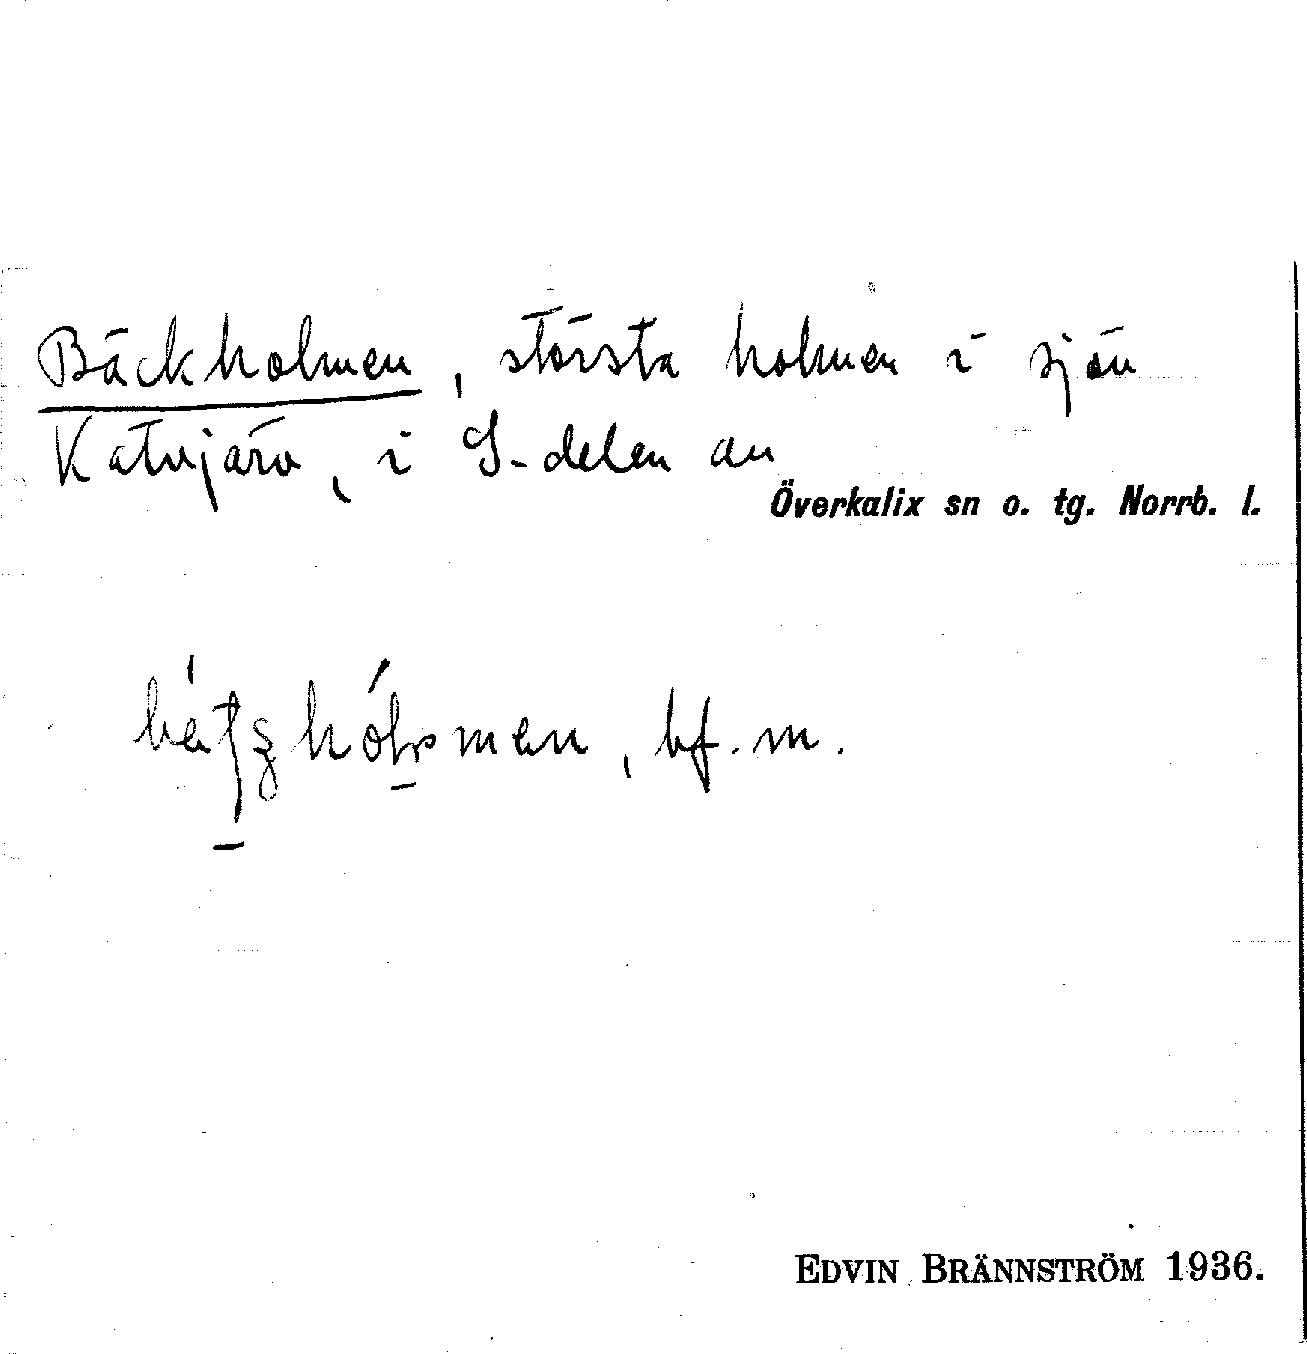 Bäckholmen, största holmen i sjön
Katvjärv, i S-delen av
Överkalix sn o. tg. Norrb. l.
bf. m.
EDVIN BRÄNNSTRÖM 1936.